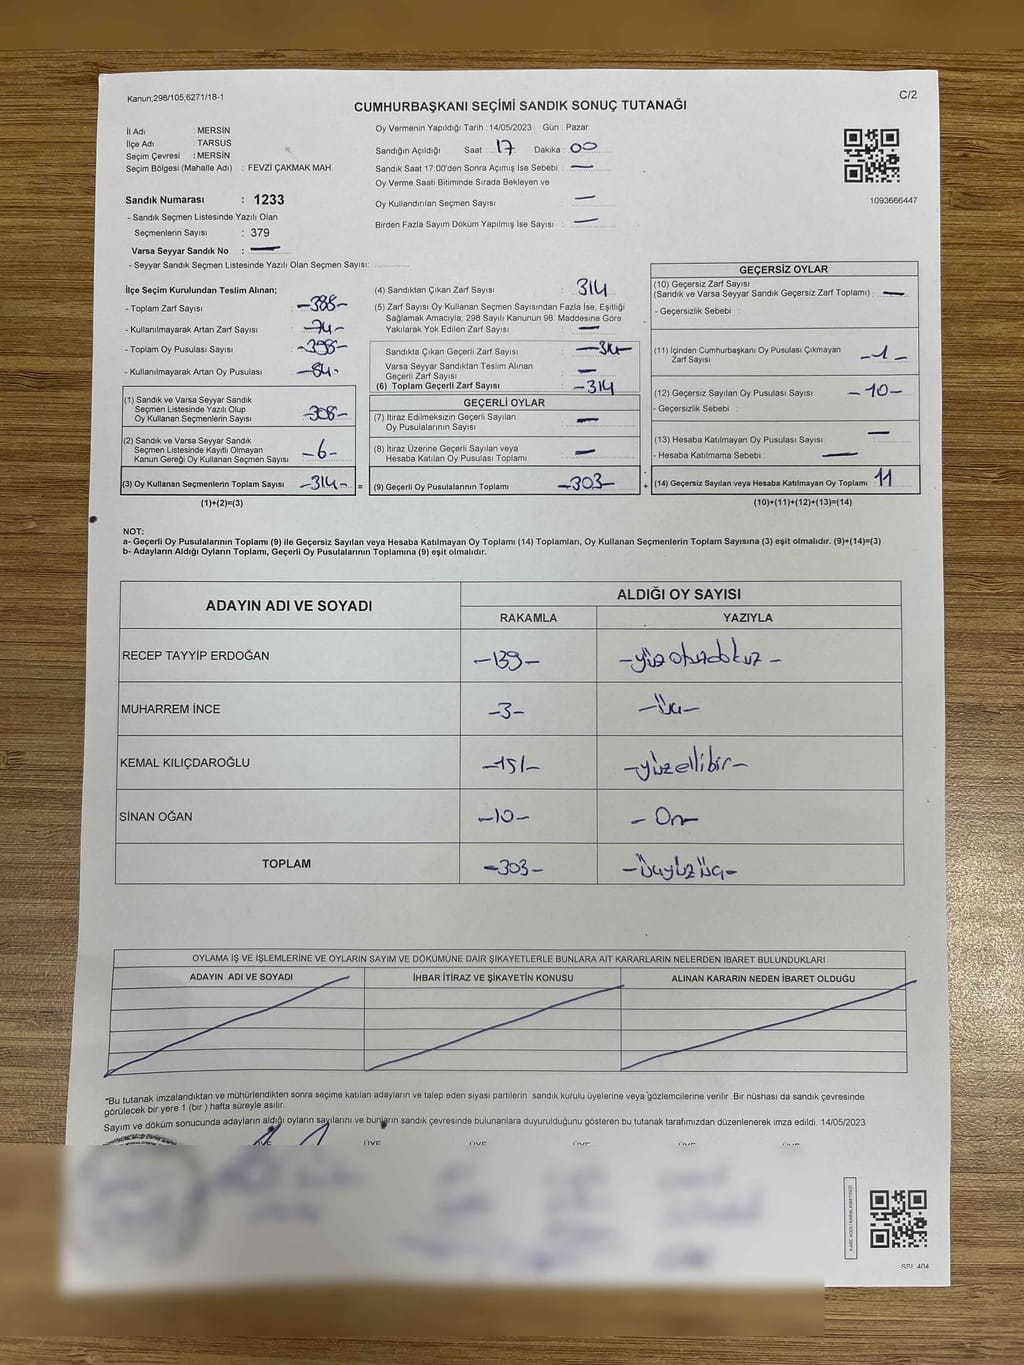 Kanun;298/105;6271/18-1
C/2
CUMHURBAŞKANI SEÇİMİ SANDIK SONUÇ TUTANAĞI
İl Adı : MERSİN
İlçe Adı : TARSUS
Seçim Çevresi : MERSİN
Seçim Bölgesi (Mahalle Adı) : FEVZİ ÇAKMAK MAH.
Sandık Numarası : 1233
- Sandık Seçmen Listesinde Yazılı Olan
Seçmenlerin Sayısı : 379
Varsa Seyyar Sandık No : —
- Seyyar Sandık Seçmen Listesinde Yazılı Olan Seçmen Sayısı:
Oy Vermenin Yapıldığı Tarih :14/05/2023 Gün : Pazar
Sandığın Açıldığı Saat : 17 Dakika : 00
Sandık Saat 17:00'den Sonra Açımış İse Sebebi : —
Oy Verme Saati Bitiminde Sırada Bekleyen ve
Oy Kullandırılan Seçmen Sayısı : —
Birden Fazla Sayım Döküm Yapılmış İse Sayısı : —
1093666447
İlçe Seçim Kurulundan Teslim Alınan;
- Toplam Zarf Sayısı : -388-
- Kullanılmayarak Artan Zarf Sayısı : -74-
- Toplam Oy Pusulası Sayısı : -398-
- Kullanılmayarak Artan Oy Pusulası : -84-
(1) Sandık ve Varsa Seyyar Sandık
Seçmen Listesinde Yazılı Olup
Oy Kullanan Seçmenlerin Sayısı : -308-
(2) Sandık ve Varsa Seyyar Sandık
Seçmen Listesinde Kayıtlı Olmayan
Kanun Gereği Oy Kullanan Seçmen Sayısı : -6-
(3) Oy Kullanan Seçmenlerin Toplam Sayısı : -314- =
(1)+(2)=(3)
(4) Sandıktan Çıkan Zarf Sayısı : 314
(5) Zarf Sayısı Oy Kullanan Seçmen Sayısından Fazla İse, Eşitliği
Sağlamak Amacıyla; 298 Sayılı Kanunun 98. Maddesine Göre
Yakılarak Yok Edilen Zarf Sayısı : —
Sandıkta Çıkan Geçerli Zarf Sayısı : -314-
Varsa Seyyar Sandıktan Teslim Alınan
Geçerli Zarf Sayısı : —
(6) Toplam Geçerli Zarf Sayısı : -314
GEÇERLİ OYLAR
(7) İtiraz Edilmeksizin Geçerli Sayılan
Oy Pusulalarının Sayısı : —
(8) İtiraz Üzerine Geçerli Sayılan veya
Hesaba Katılan Oy Pusulası Toplamı : —
(9) Geçerli Oy Pusulalarının Toplamı : -303- +
GEÇERSİZ OYLAR
(10) Geçersiz Zarf Sayısı
(Sandık ve Varsa Seyyar Sandık Geçersiz Zarf Toplamı) : —
- Geçersizlik Sebebi :
(11) İçinden Cumhurbaşkanı Oy Pusulası Çıkmayan
Zarf Sayısı : -1-
(12) Geçersiz Sayılan Oy Pusulası Sayısı : -10-
- Geçersizlik Sebebi :
(13) Hesaba Katılmayan Oy Pusulası Sayısı : —
- Hesaba Katılmama Sebebi : —
(14) Geçersiz Sayılan veya Hesaba Katılmayan Oy Toplamı : 11
(10)+(11)+(12)+(13)=(14)
NOT:
a- Geçerli Oy Pusulalarının Toplamı (9) ile Geçersiz Sayılan veya Hesaba Katılmayan Oy Toplamı (14) Toplamları, Oy Kullanan Seçmenlerin Toplam Sayısına (3) eşit olmalıdır. (9)+(14)=(3)
b- Adayların Aldığı Oyların Toplamı, Geçerli Oy Pusulalarının Toplamına (9) eşit olmalıdır.
ADAYIN ADI VE SOYADI
ALDIĞI OY SAYISI
RAKAMLA YAZIYLA
RECEP TAYYİP ERDOĞAN -139- -yüzotuzdokuz-
MUHARREM İNCE -3- -Üç-
KEMAL KILIÇDAROĞLU -151- -yüzellibir-
SİNAN OĞAN -10- -On-
TOPLAM -303- -üçyüzüç-
OYLAMA İŞ VE İŞLEMLERİNE VE OYLARIN SAYIM VE DÖKÜMÜNE DAİR ŞİKAYETLERLE BUNLARA AİT KARARLARIN NELERDEN İBARET BULUNDUKLARI
ADAYIN ADI VE SOYADI İHBAR İTİRAZ VE ŞİKAYETİN KONUSU ALINAN KARARIN NEDEN İBARET OLDUĞU
*Bu tutanak imzalandıktan ve mühürlendikten sonra seçime katılan adayların ve talep eden siyasi partilerin sandık kurulu üyelerine veya gözlemcilerine verilir. Bir nüshası da sandık çevresinde
görülecek bir yere 1 (bir ) hafta süreyle asılır.
Sayım ve döküm sonucunda adayların aldığı oyların sayılarını ve bunların sandık çevresinde bulunanlara duyurulduğunu gösteren bu tutanak tarafımızdan düzenlenerek imza edildi. 14/05/2023
ÜYE ÜYE ÜYE ÜYE ÜYE